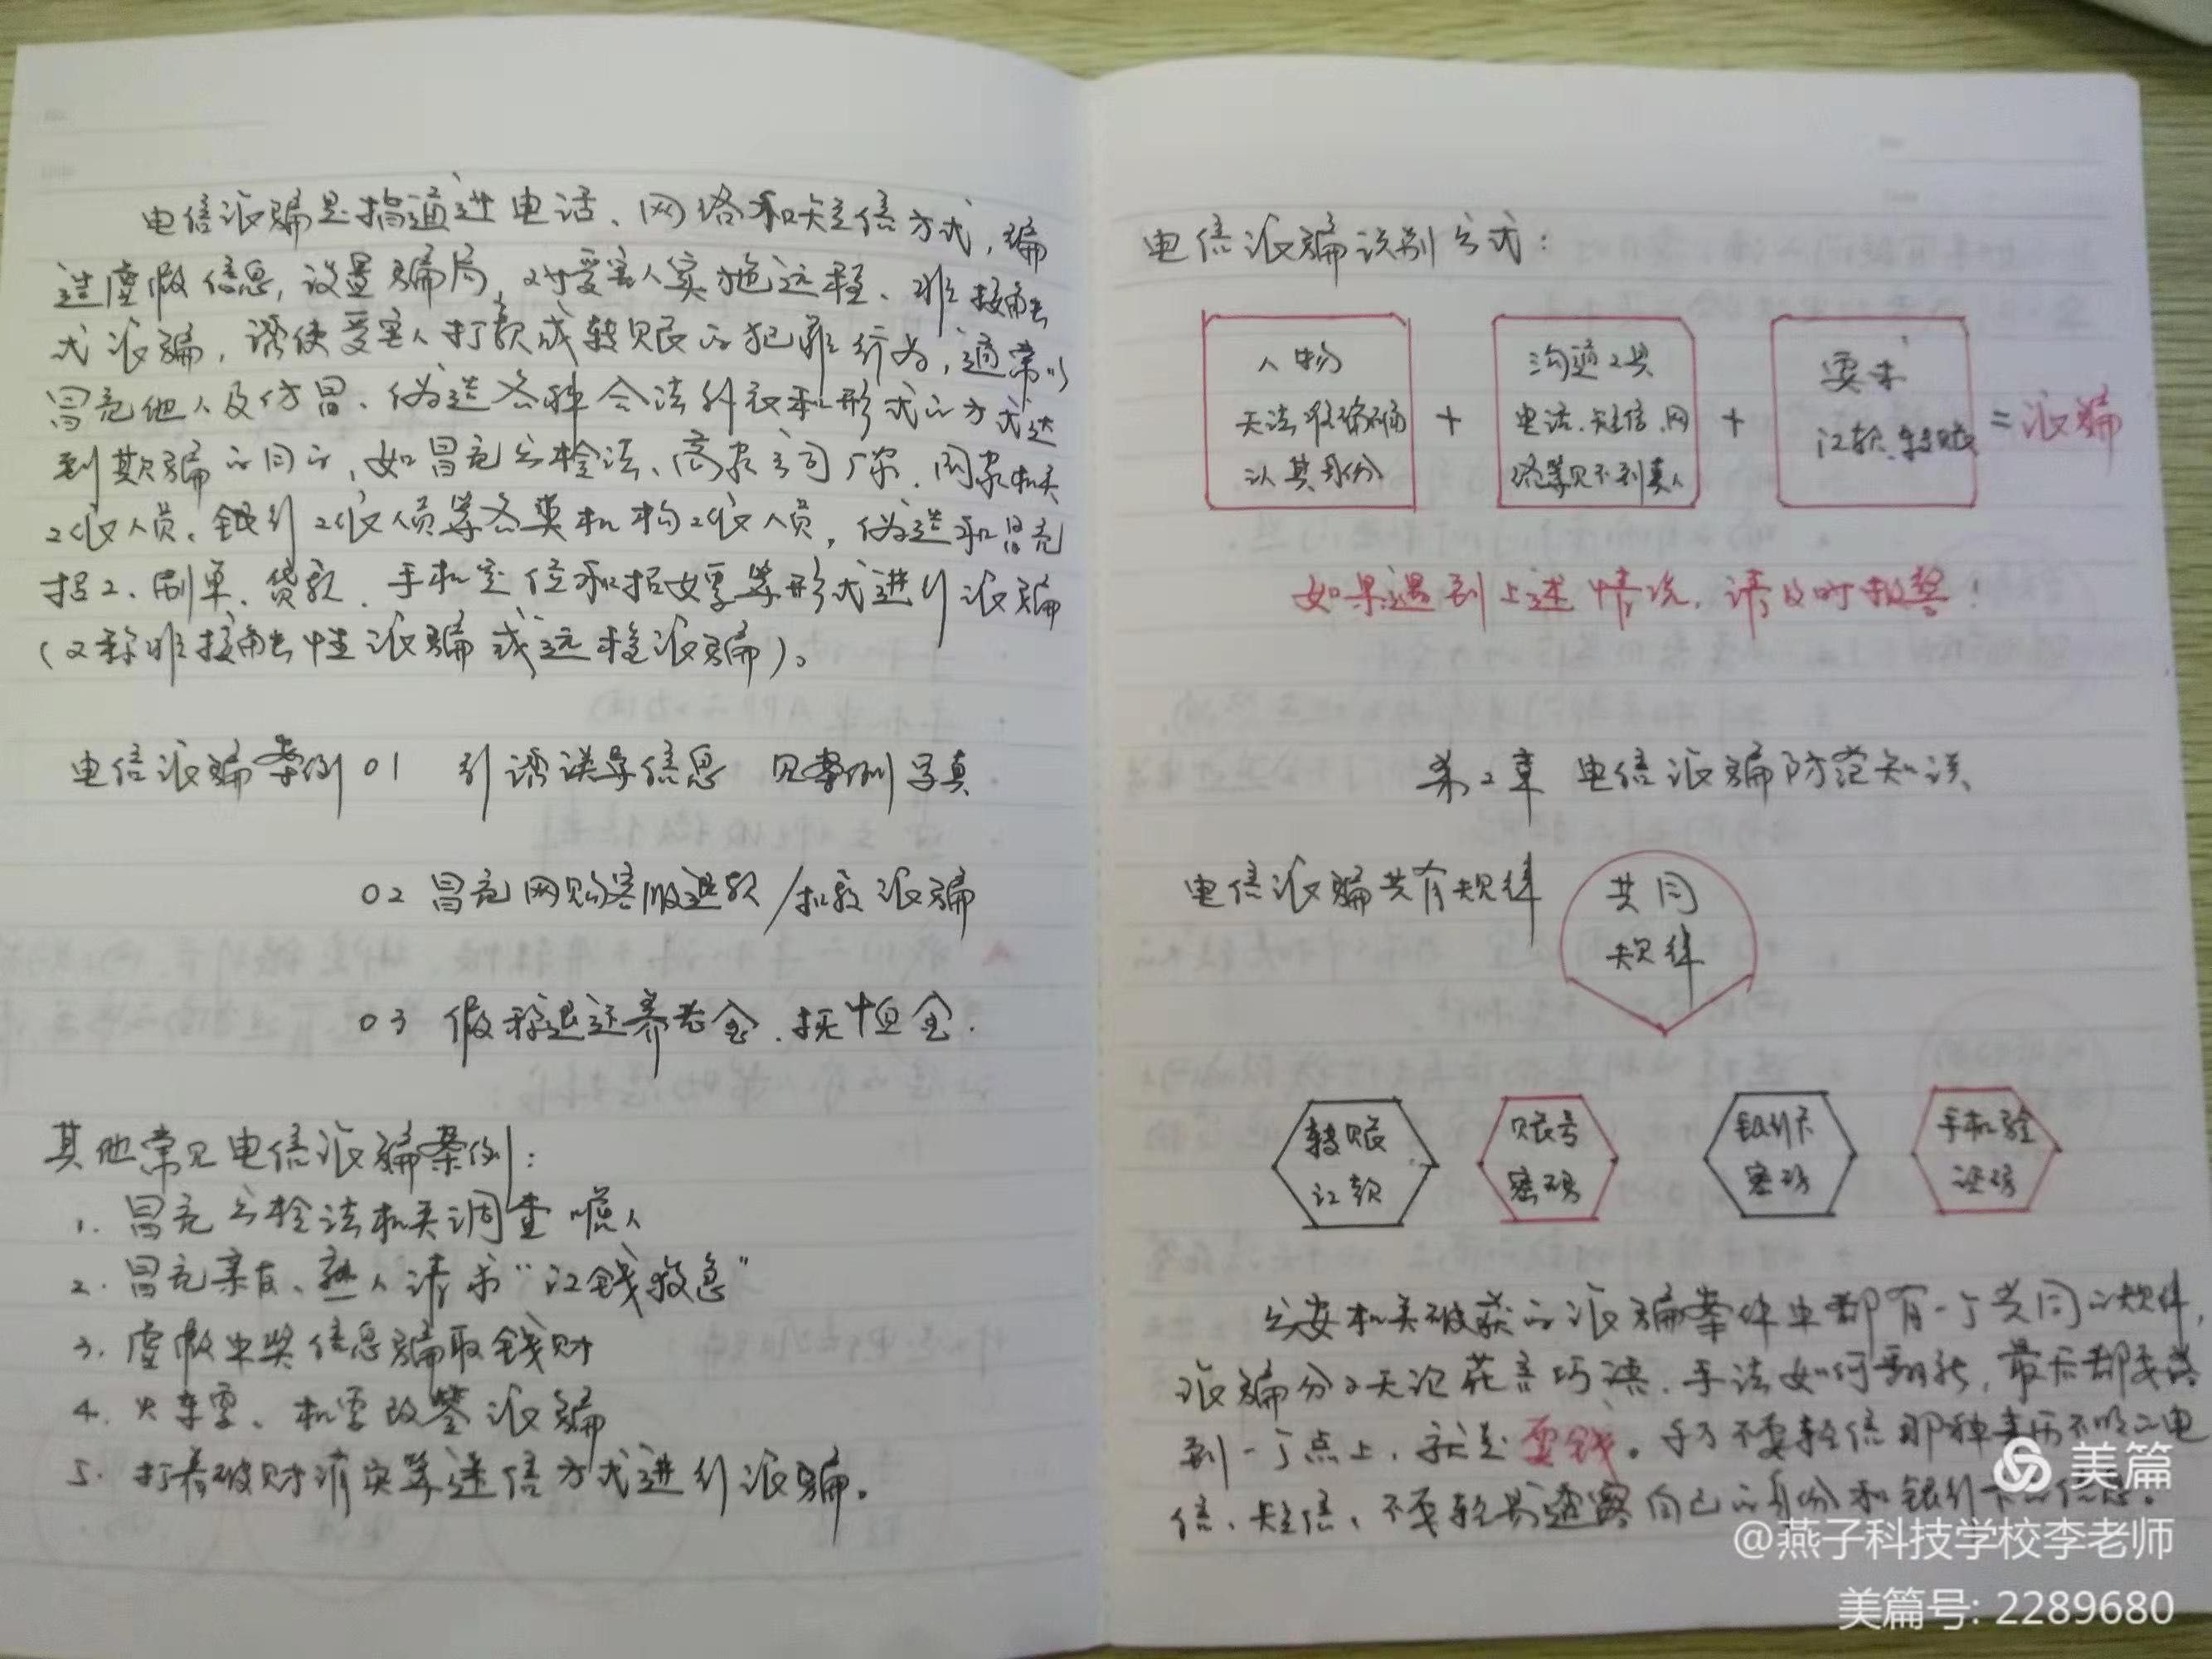 电信诈骗是指通过电话、网络和短信方式，编
造虚假信息，设置骗局，对受害人实施远程、非接触
式诈骗，诱使受害人打款或转账的犯罪行为，通常以
冒充他人及仿冒、伪造各种合法外衣和形式的方式达
到欺骗的目的，如冒充公检法、商家公司厂家、国家机关
工作人员、银行工作人员等各类机构工作人员，伪造和冒充
招工、刷单、贷款、手机定位和招嫖等形式进行诈骗
（又称非接触性诈骗或远程诈骗）。
电信诈骗案例01 引诱误导信息 见案例写真
02 冒充网购客服退款/扣款诈骗
03 假称退还养老金、抚恤金.
其他常见电信诈骗案例：
1. 冒充公检法机关调查唬人
2. 冒充亲友、熟人请求“汇钱救急”
3. 虚假中奖信息骗取钱财
4. 火车票、机票改签诈骗
5. 打着破财消灾等迷信方式进行诈骗。
电信诈骗识别公式：
人物
无法准确确
认其身份
+
沟通工具
电话、短信、网
络等见不到真人
+
要求
汇款、转账
=诈骗
如果遇到上述情况，请及时报警！
第2章 电信诈骗防范知识
电信诈骗共有规律
共同
规律
转账
汇款
账号
密码
银行卡
密码
手机验
证码
公安机关破获的诈骗案件中都有一个共同的规律，
诈骗分子无论花言巧语、手法如何翻新，最后都要落
到一个点上，就是要钱。千万不要轻信那种来历不明的电
信、短信、不要轻易透露自己的身份和银行卡的信息。
美篇
@燕子科技学校李老师
美篇号: 2289680